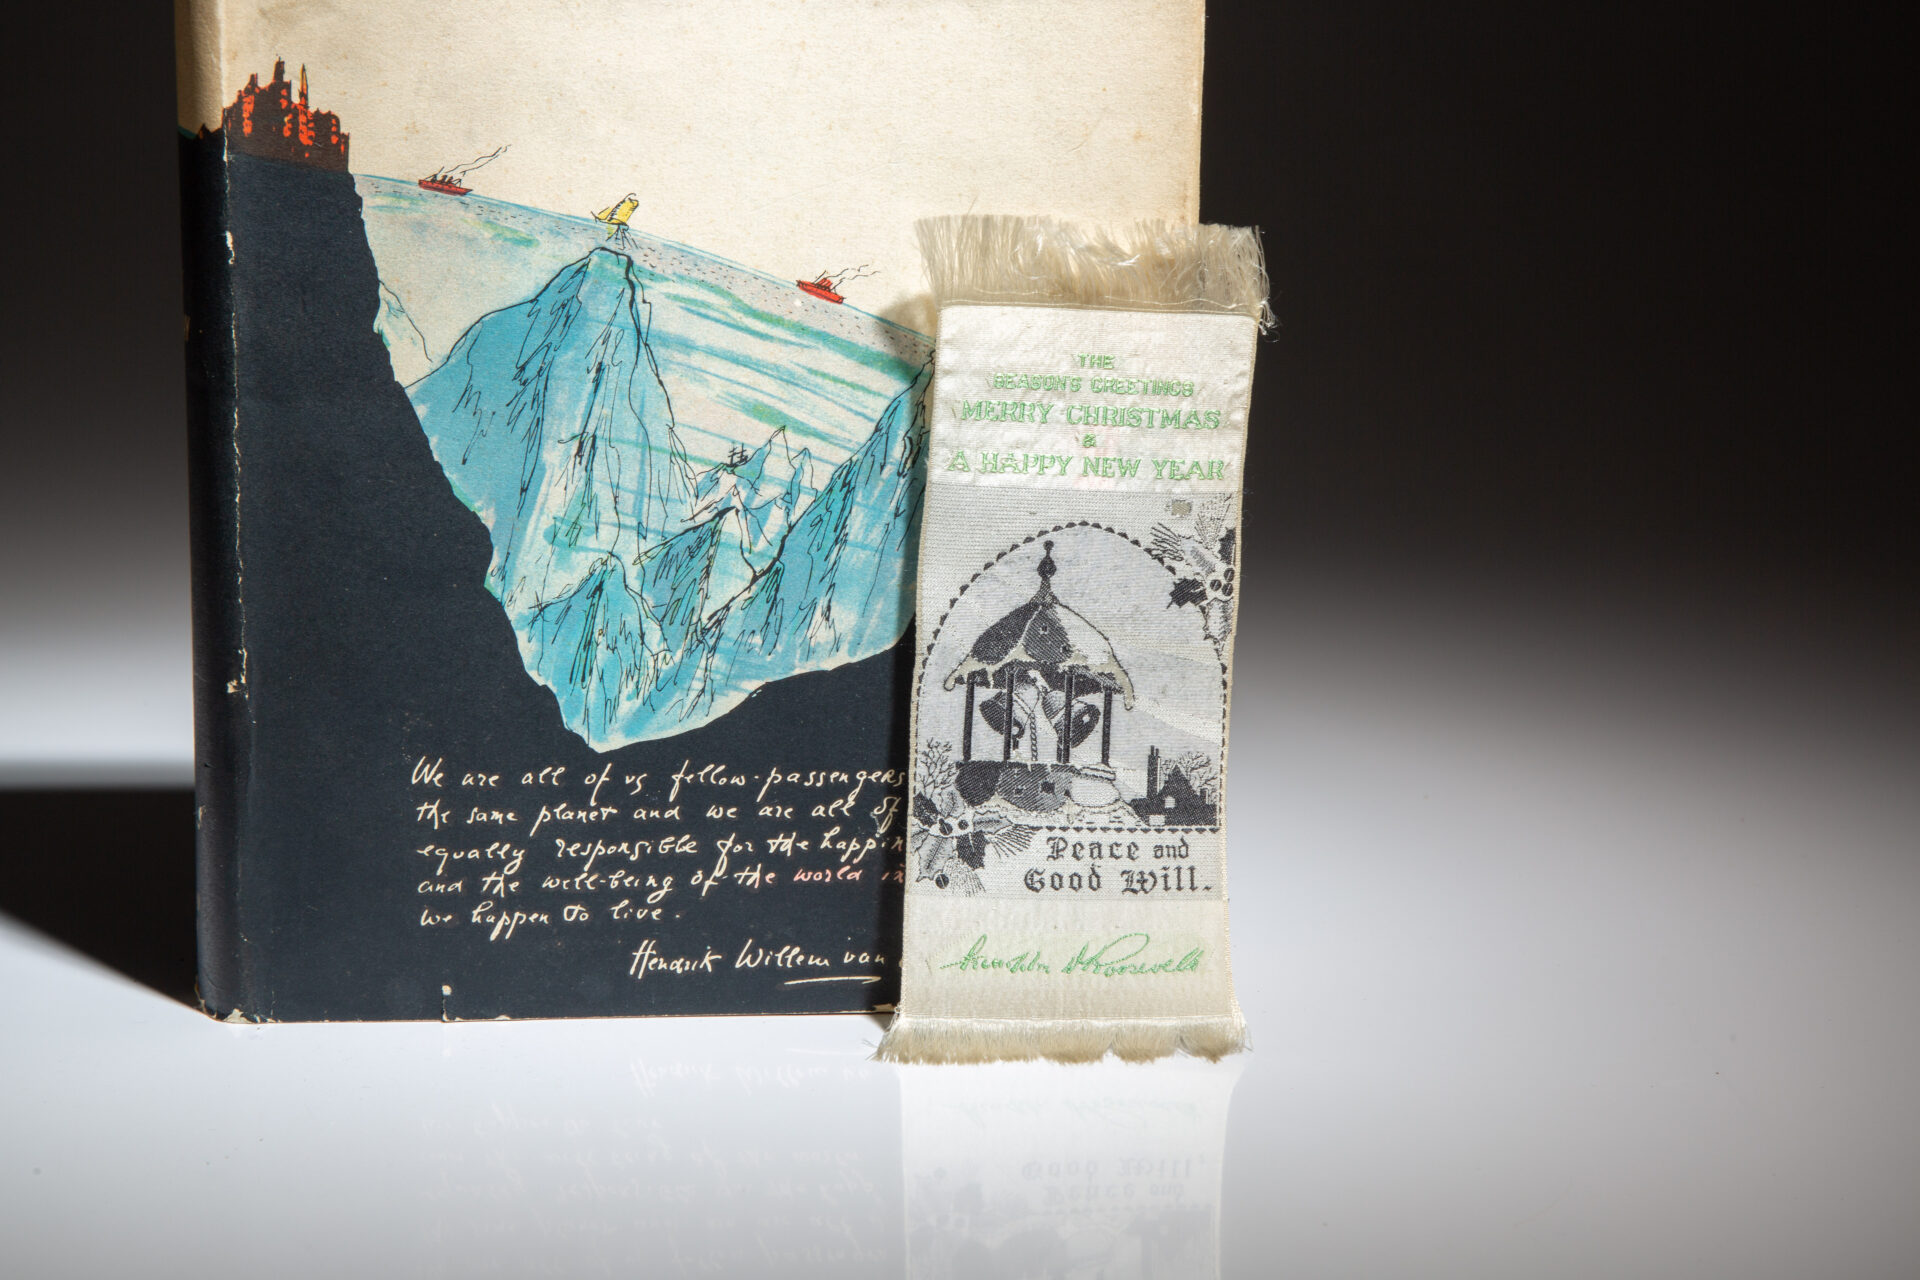 We are all of us fellow-passengers
the same planet and we are all of
equally responsible for the happin
and the well-being of the world in
we happen to live.
Hendrik Willem van
THE
SEASON'S GREETINGS
MERRY CHRISTMAS
&
A HAPPY NEW YEAR
Peace and
Good Will.
Franklin D Roosevelt